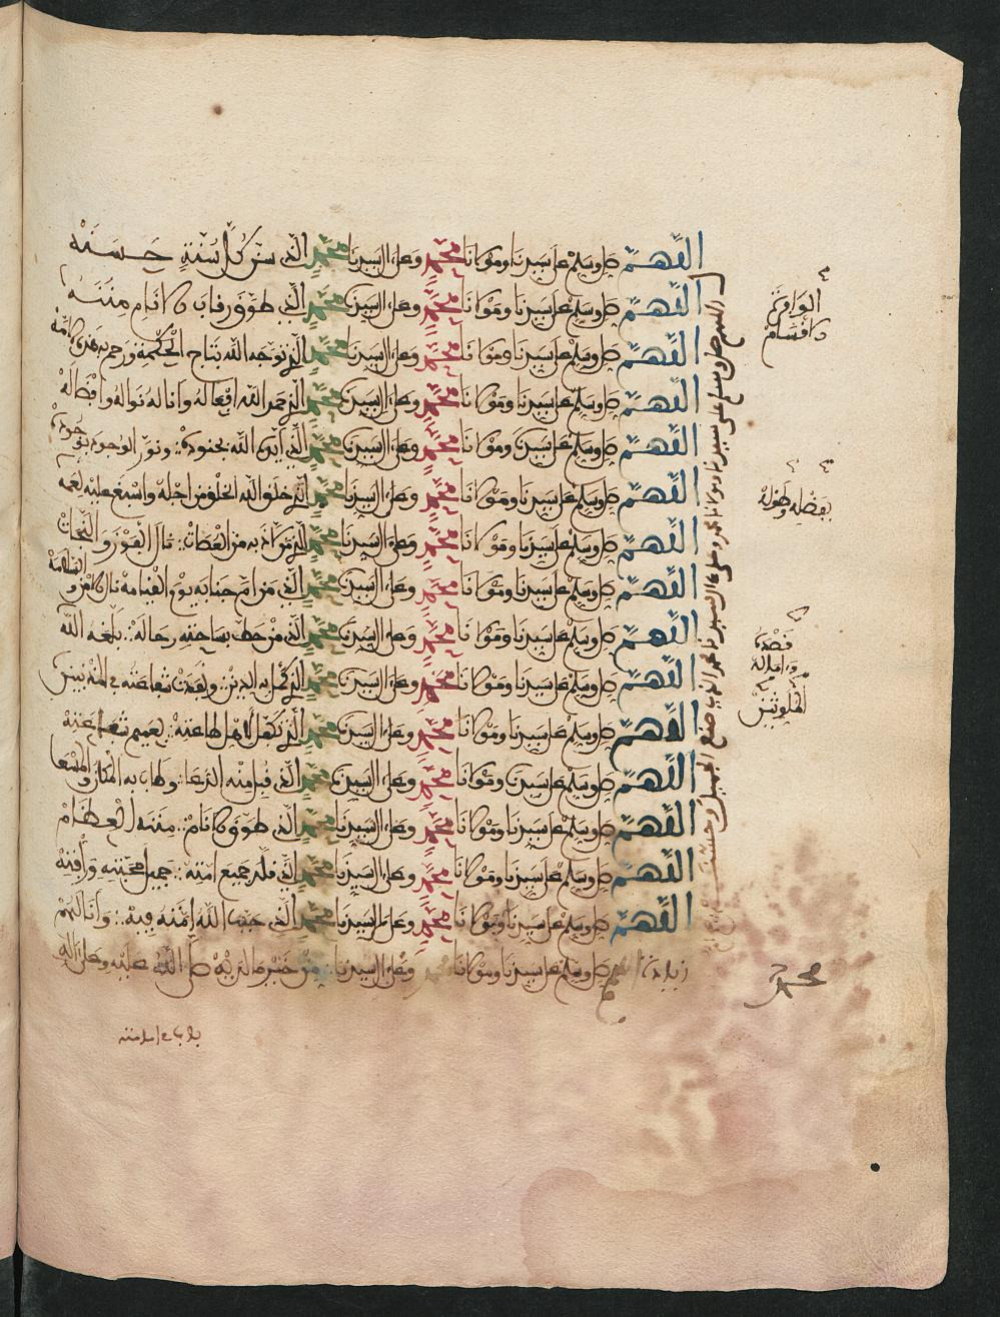 اللهم صل وسلم على سيدنا ومولانا محمد وعلى ءال سيدنا محمد الذي سن كل سنة حسنه
اللهم صل وسلم على سيدنا ومولانا محمد وعلى ءال سيدنا محمد الذي طوق رقاب الانام مننه
اللهم صل وسلم على سيدنا ومولانا محمد وعلى ءال سيدنا محمد الذي توجه الله بتاج الحكمة ورحم به هذه الامة
اللهم صل وسلم على سيدنا ومولانا محمد وعلى ءال سيدنا محمد الذي حمد الله افعاله واناله نواله وافضاله
اللهم صل وسلم على سيدنا ومولانا محمد وعلى ءال سيدنا محمد الذي ايده الله بجنوده ونور الوجود بوجوده
اللهم صل وسلم على سيدنا ومولانا محمد وعلى ءال سيدنا محمد الذي خلق الله الخلق من اجله واسبغ عليه نعمه
اللهم صل وسلم على سيدنا ومولانا محمد وعلى ءال سيدنا محمد الذي من لاذ به من العصات نال الفوز والنجات
اللهم صل وسلم على سيدنا ومولانا محمد وعلى ءال سيدنا محمد الذي من ام جنابه يوم القيامة نال الامن و السلامة
اللهم صل وسلم على سيدنا ومولانا محمد وعلى ءال سيدنا محمد الذي من حط بساحته رحاله بلغه الله
اللهم صل وسلم على سيدنا ومولانا محمد وعلى ءال سيدنا محمد الذي كمل به الدين ونفذت شفاعته في المذنبين
اللهم صل وسلم على سيدنا ومولانا محمد وعلى ءال سيدنا محمد الذي تكفل لاهل طاعته بعميم شفاعته
اللهم صل وسلم على سيدنا ومولانا محمد وعلى ءال سيدنا محمد الذي قبل منه الدعا وطاب به
اللهم صل وسلم على سيدنا ومولانا محمد وعلى ءال سيدنا محمد الذي طوق الانام مننه العظام
اللهم صل وسلم على سيدنا ومولانا محمد وعلى ءال سيدنا محمد الذي قلد جميع امته جميل محبته ورافته
اللهم صل وسلم على سيدنا ومولانا محمد وعلى ءال سيدنا محمد الذي حبب الله امته فيه وانالهم
صل وسلم على سيدنا ومولانا محمد وعلى ءال سيدنا من خير ما لديه صلى الله عليه وعلى ءاله
اللهم صل وسلم على سيدنا ومولانا محمد وعلى ءال سيدنا محمد الذي صنع الجميل
الوافرة
الاقسام
بفضله وطوله
قصده
وءاماله
الملوثين